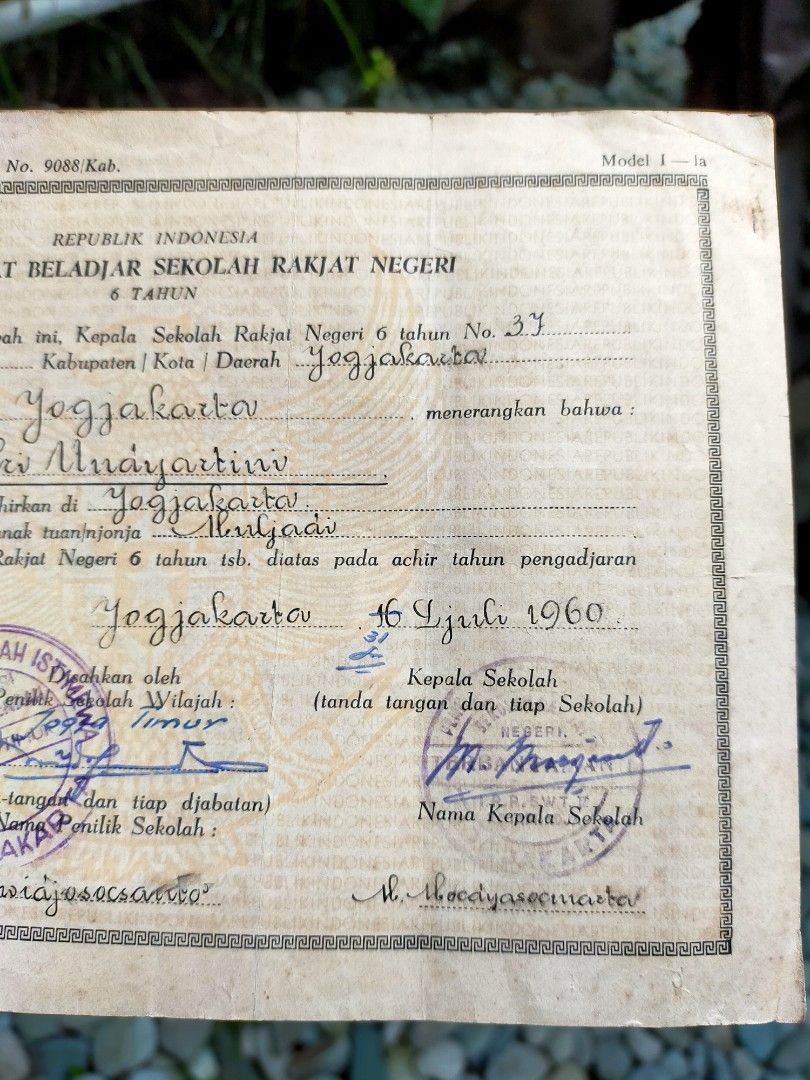 No. 9088/Kab.
Model I — Ia
REPUBLIK INDONESIA
AT BELADJAR SEKOLAH RAKJAT NEGERI
6 TAHUN
ah ini, Kepala Sekolah Rakjat Negeri 6 tahun No. 37
Kabupaten / Kota / Daerah Yogjakarta
Yogjakarta, menerangkan bahwa :
ri Mudyartini,
hirkan di Yogjakarta
nak tuan/njonja Muljadi
Rakjat Negeri 6 tahun tsb. diatas pada achir tahun pengadjaran
Yogjakarta, 16 Djuli 1960
31
Disahkan oleh
Penilik Sekolah Wilajah :
Jogja Timur
-tangan dan tiap djabatan)
Nama Penilik Sekolah :
widjosoesanto
Kepala Sekolah
(tanda tangan dan tiap Sekolah)
NEGERI.
Nama Kepala Sekolah
M. Moedyasoemarta
AH ISTIMEWA